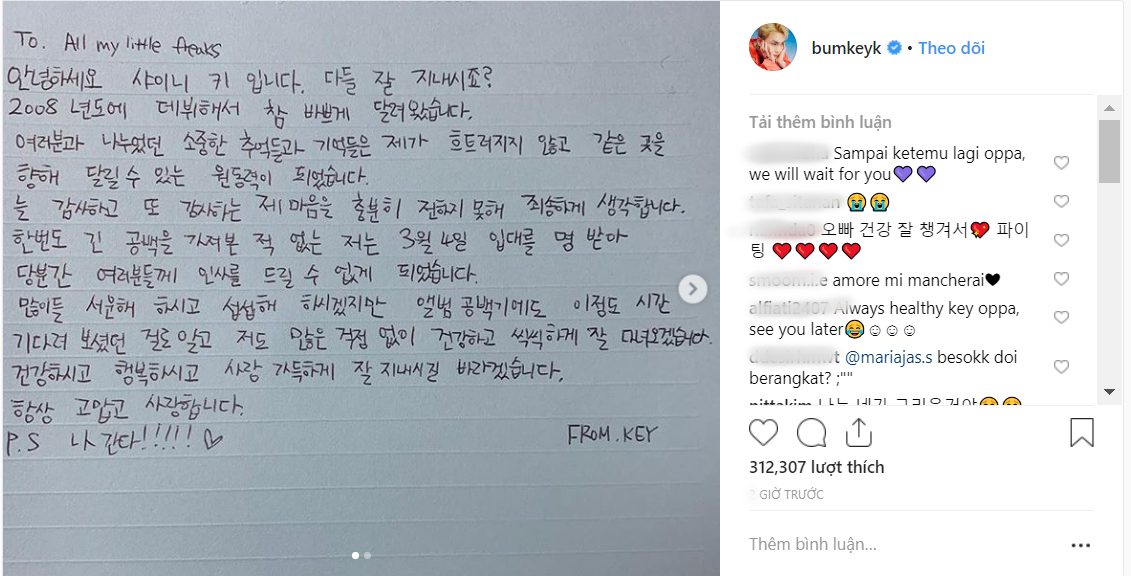 To. All my little freaks
안녕하세요 샤이니 키 입니다. 다들 잘 지내시죠?
2008 년도에 데뷔해서 참 바쁘게 달려왔습니다.
여러분과 나누었던 소중한 추억들과 기억들은 제가 흐트러지지 않고 같은 곳을
향해 달릴 수 있는 원동력이 되었습니다.
늘 감사하고 또 감사하는 제 마음을 충분히 전하지 못해 죄송하게 생각합니다.
한번도 긴 공백을 가져본 적 없는 저는 3월 4일 입대를 명 받아
당분간 여러분들께 인사를 드릴 수 없게 되었습니다.
많이들 서운해 하시고 섭섭해 하시겠지만 앨범 공백기에도 이정도 시간
기다려 보셨던 걸로 알고 저도 많은 걱정 없이 건강하고 씩씩하게 잘 다녀오겠습니다.
건강하시고 행복하시고 사랑 가득하게 잘 지내시길 바라겠습니다.
항상 고맙고 사랑합니다.
P.S 나 간다!!!!! ♡
FROM.KEY
bumkeyk • Theo dõi
Tải thêm bình luận
Sampai ketemu lagi oppa,
we will wait for you💜💜
😭😭
오빠 건강 잘 챙겨서💖 파이
팅 ❤❤❤❤
amore mi mancherai🖤
alfiati2407 Always healthy key oppa,
see you later😂☺☺☺
@mariajas.s besokk doi
berangkat? ;""
pittakim 나는 네가 그리울거야
312,307 lượt thích
2 GIỜ TRƯỚC
Thêm bình luận...